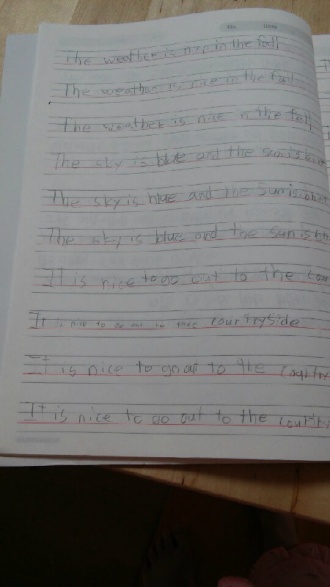 No. Date
The weather is nice in the fall
The weather is nice in the fall
The weather is nice n the fall
The sky is blue and the sun is
The sky is blue and the Sun is
The sky is blue and the sun is
It is nice to go out to the cou
It is nice to go out to the courtryside
It is nice to go out to the country
It is nice to go out to the country